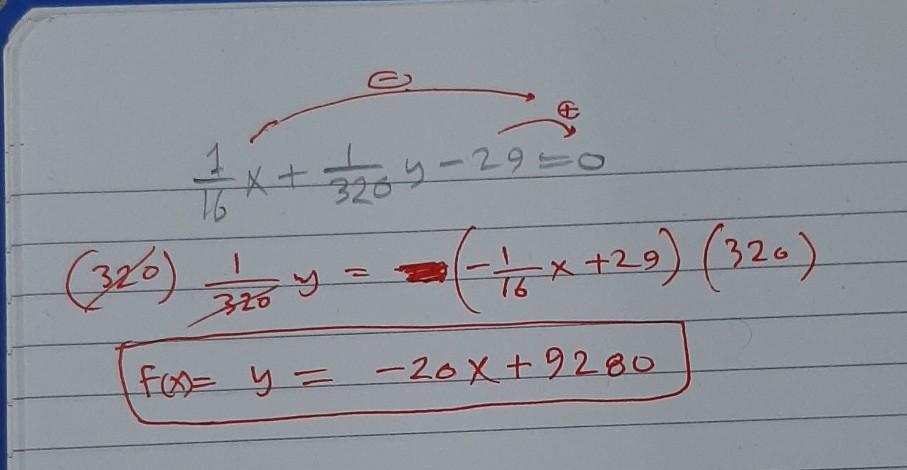 ⊖ ⊕
1/16 x + 1/320 y - 29 = 0
(320) 1/320 y = (-1/16 x + 29) (320)
F(x) = y = -20x + 9280